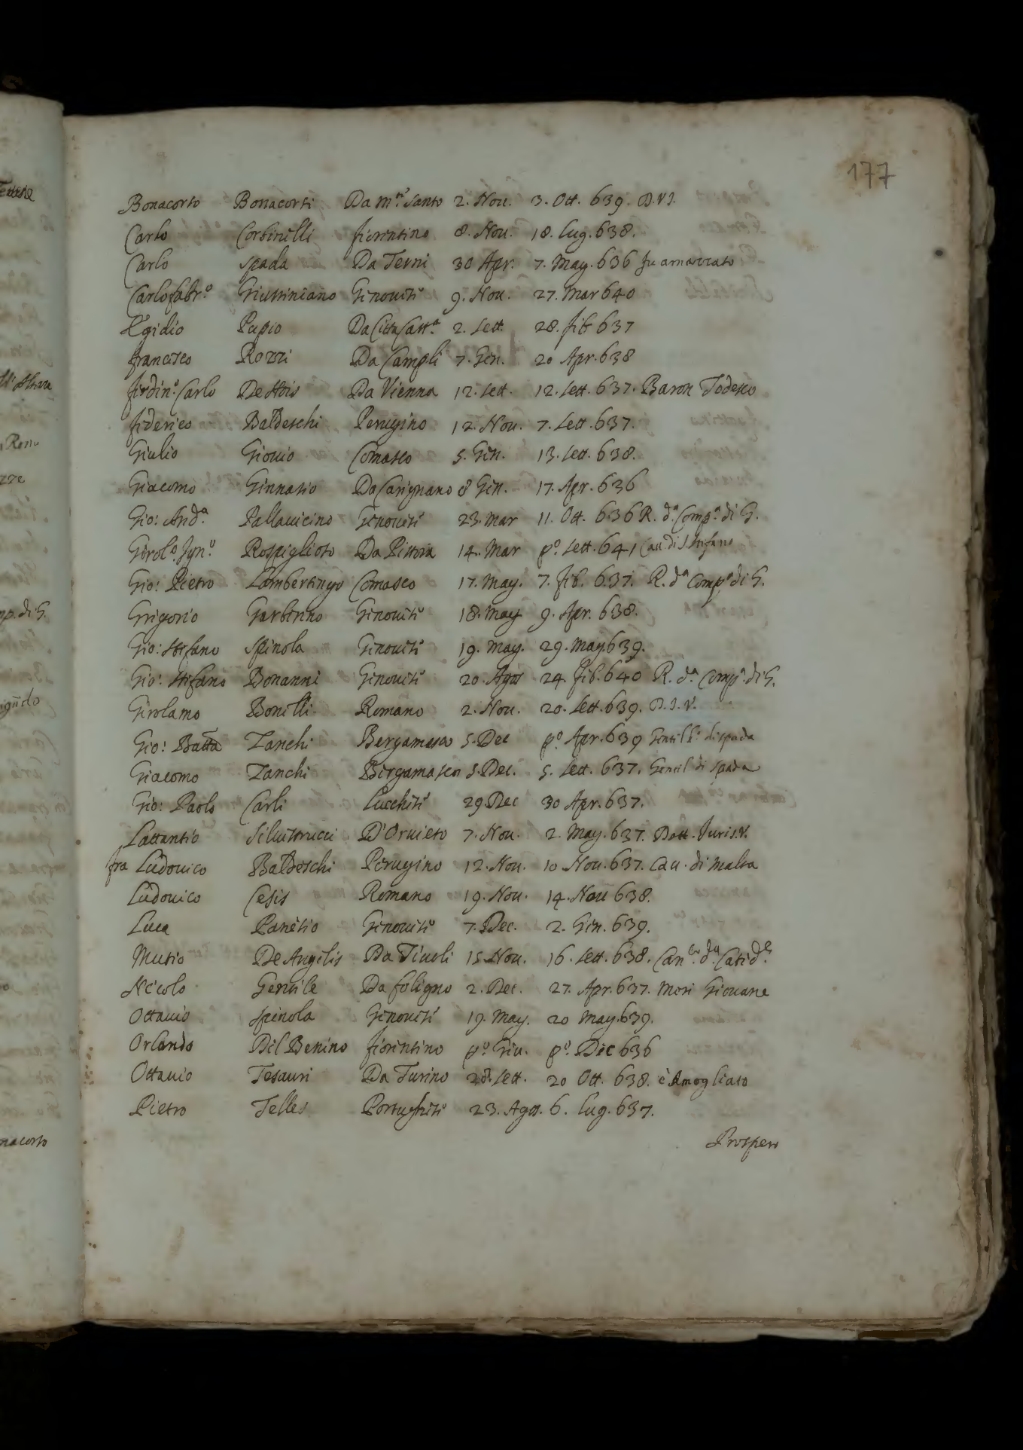 177
Bonacorto Bonacorti Da m.te Santo 2. Nou. 3. Ott. 639. D.V.I.
Carlo Corbinelli fiorentino 8. Nou. 18. Lug. 638.
Carlo Spada Da Terni 30 Apr. 7. May. 636 fu amazzato
Carlo fabr.o Giustiniano Genouese 9. Nou. 27. Mar 640
Egidio Pupio Da 2. Sett. 28. feb 637
francesco Rozzi Da Campli 7. Gen. 20 Apr. 638
ferdin.o Carlo De Da Vienna 12. Sett. 12. Sett. 637. Baron Todesco
federico Baldeschi Perugino 12. Nou. 7. Sett. 637.
Giulio Giouio Comasco 5. Gen. 13. Sett. 638.
Giacomo Ginnasio Da Carignano 8 Gen. 17. Apr. 636
Gio: And.a Pallauicino Genouese 23. Mar 11. Ott. 636 R. d.a Comp.a di G.
Girol.o Ign.o Rospiglioso Da Pistoia 14. Mar p.o Sett. 641 Cau. di S. Stefano
Gio: Pietro Lambertengo Comasco 17. May. 7. feb. 637. R. d.a Comp.a di G.
Grigorio Garberino Genouese 18. May 9. Apr. 638.
Gio: Stefano Spinola Genouese 19. May. 29. May 639.
Gio: Stefano Bonanni Genouese 20. Agos 24. feb. 640 R. d.a Comp.a di G.
Girolamo Bonelli Romano 2. Nou. 20. Sett. 639.
Gio: Batta Zanchi Bergamasco 5. Dec p.o Apr. 639 Gentil.h di spada
Giacomo Zanchi Bergamasco 5. Dec. 5. Sett. 637. Gentil. di spada
Gio: Paolo Carli Lucchese 29 Dec 30 Apr. 637.
Lattantio Siluestrucci D'Oruieto 7. Nou 2. May. 637. Dott. Juris V.
fra Ludouico Baldeschi Perugino 12. Nou. 10. Nou. 637. Cau. di Malta
Ludouico Cesis Romano 19. Nou. 14. Nou 638.
Luca Panesio Genouese 7. Dec. 2. Gen. 639.
Mutio De Angelis Da Tiuoli 15. Nou. 16. Sett. 638. Can.co d.la Cated.le
Nicolo Gentile Da foligno 2. Dec. 27. Apr. 637. Mori Giouane
Ottauio Spinola Genouese 19. May. 20 May. 639.
Orlando Del Benino fiorentino p.o Giu. p.o Dec 636
Ottauio Tesauri Da Turino 28. Sett. 20 Ott. 638. è Amogliato
Pietro Telles Portughese 23. Agos. 6. Lug. 637.
Prospero